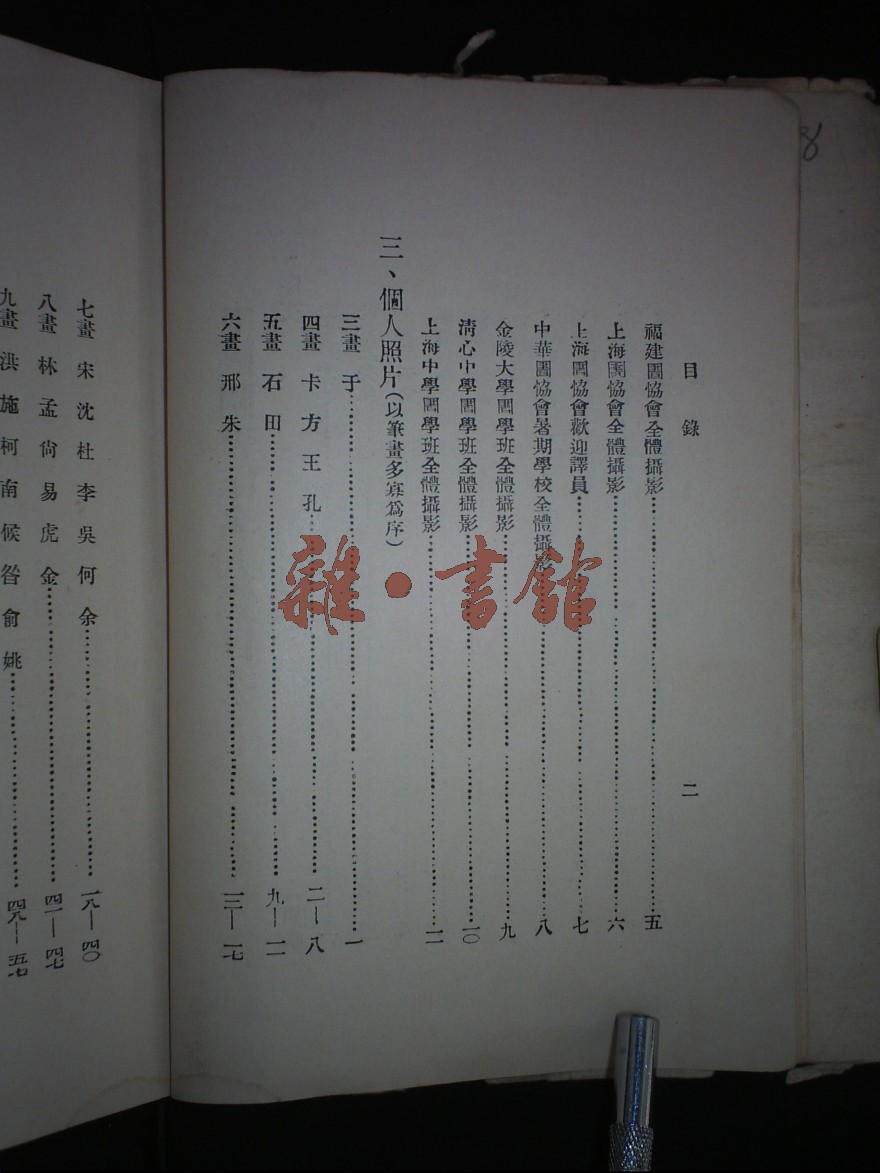 目錄
二
福建圕協會全體攝影……五
上海圕協會全體攝影……六
上海圕協會歡迎譯員……七
中華圕協會暑期學校全體攝影……八
金陵大學圕學班全體攝影……九
清心中學圕學班全體攝影……一〇
上海中學圕學班全體攝影……一一
三、個人照片(以筆畫多寡爲序)
三畫 于……一
四畫 卡 方 王 孔……二—八
五畫 石 田……九—一二
六畫 邢 朱……一三—一七
七畫 宋 沈 杜 李 吳 何 余……一八—四〇
八畫 林 孟 尙 易 虎 金……四一—四七
九畫 洪 施 柯 南 候 昝 俞 姚……四八—五七
雜·書館